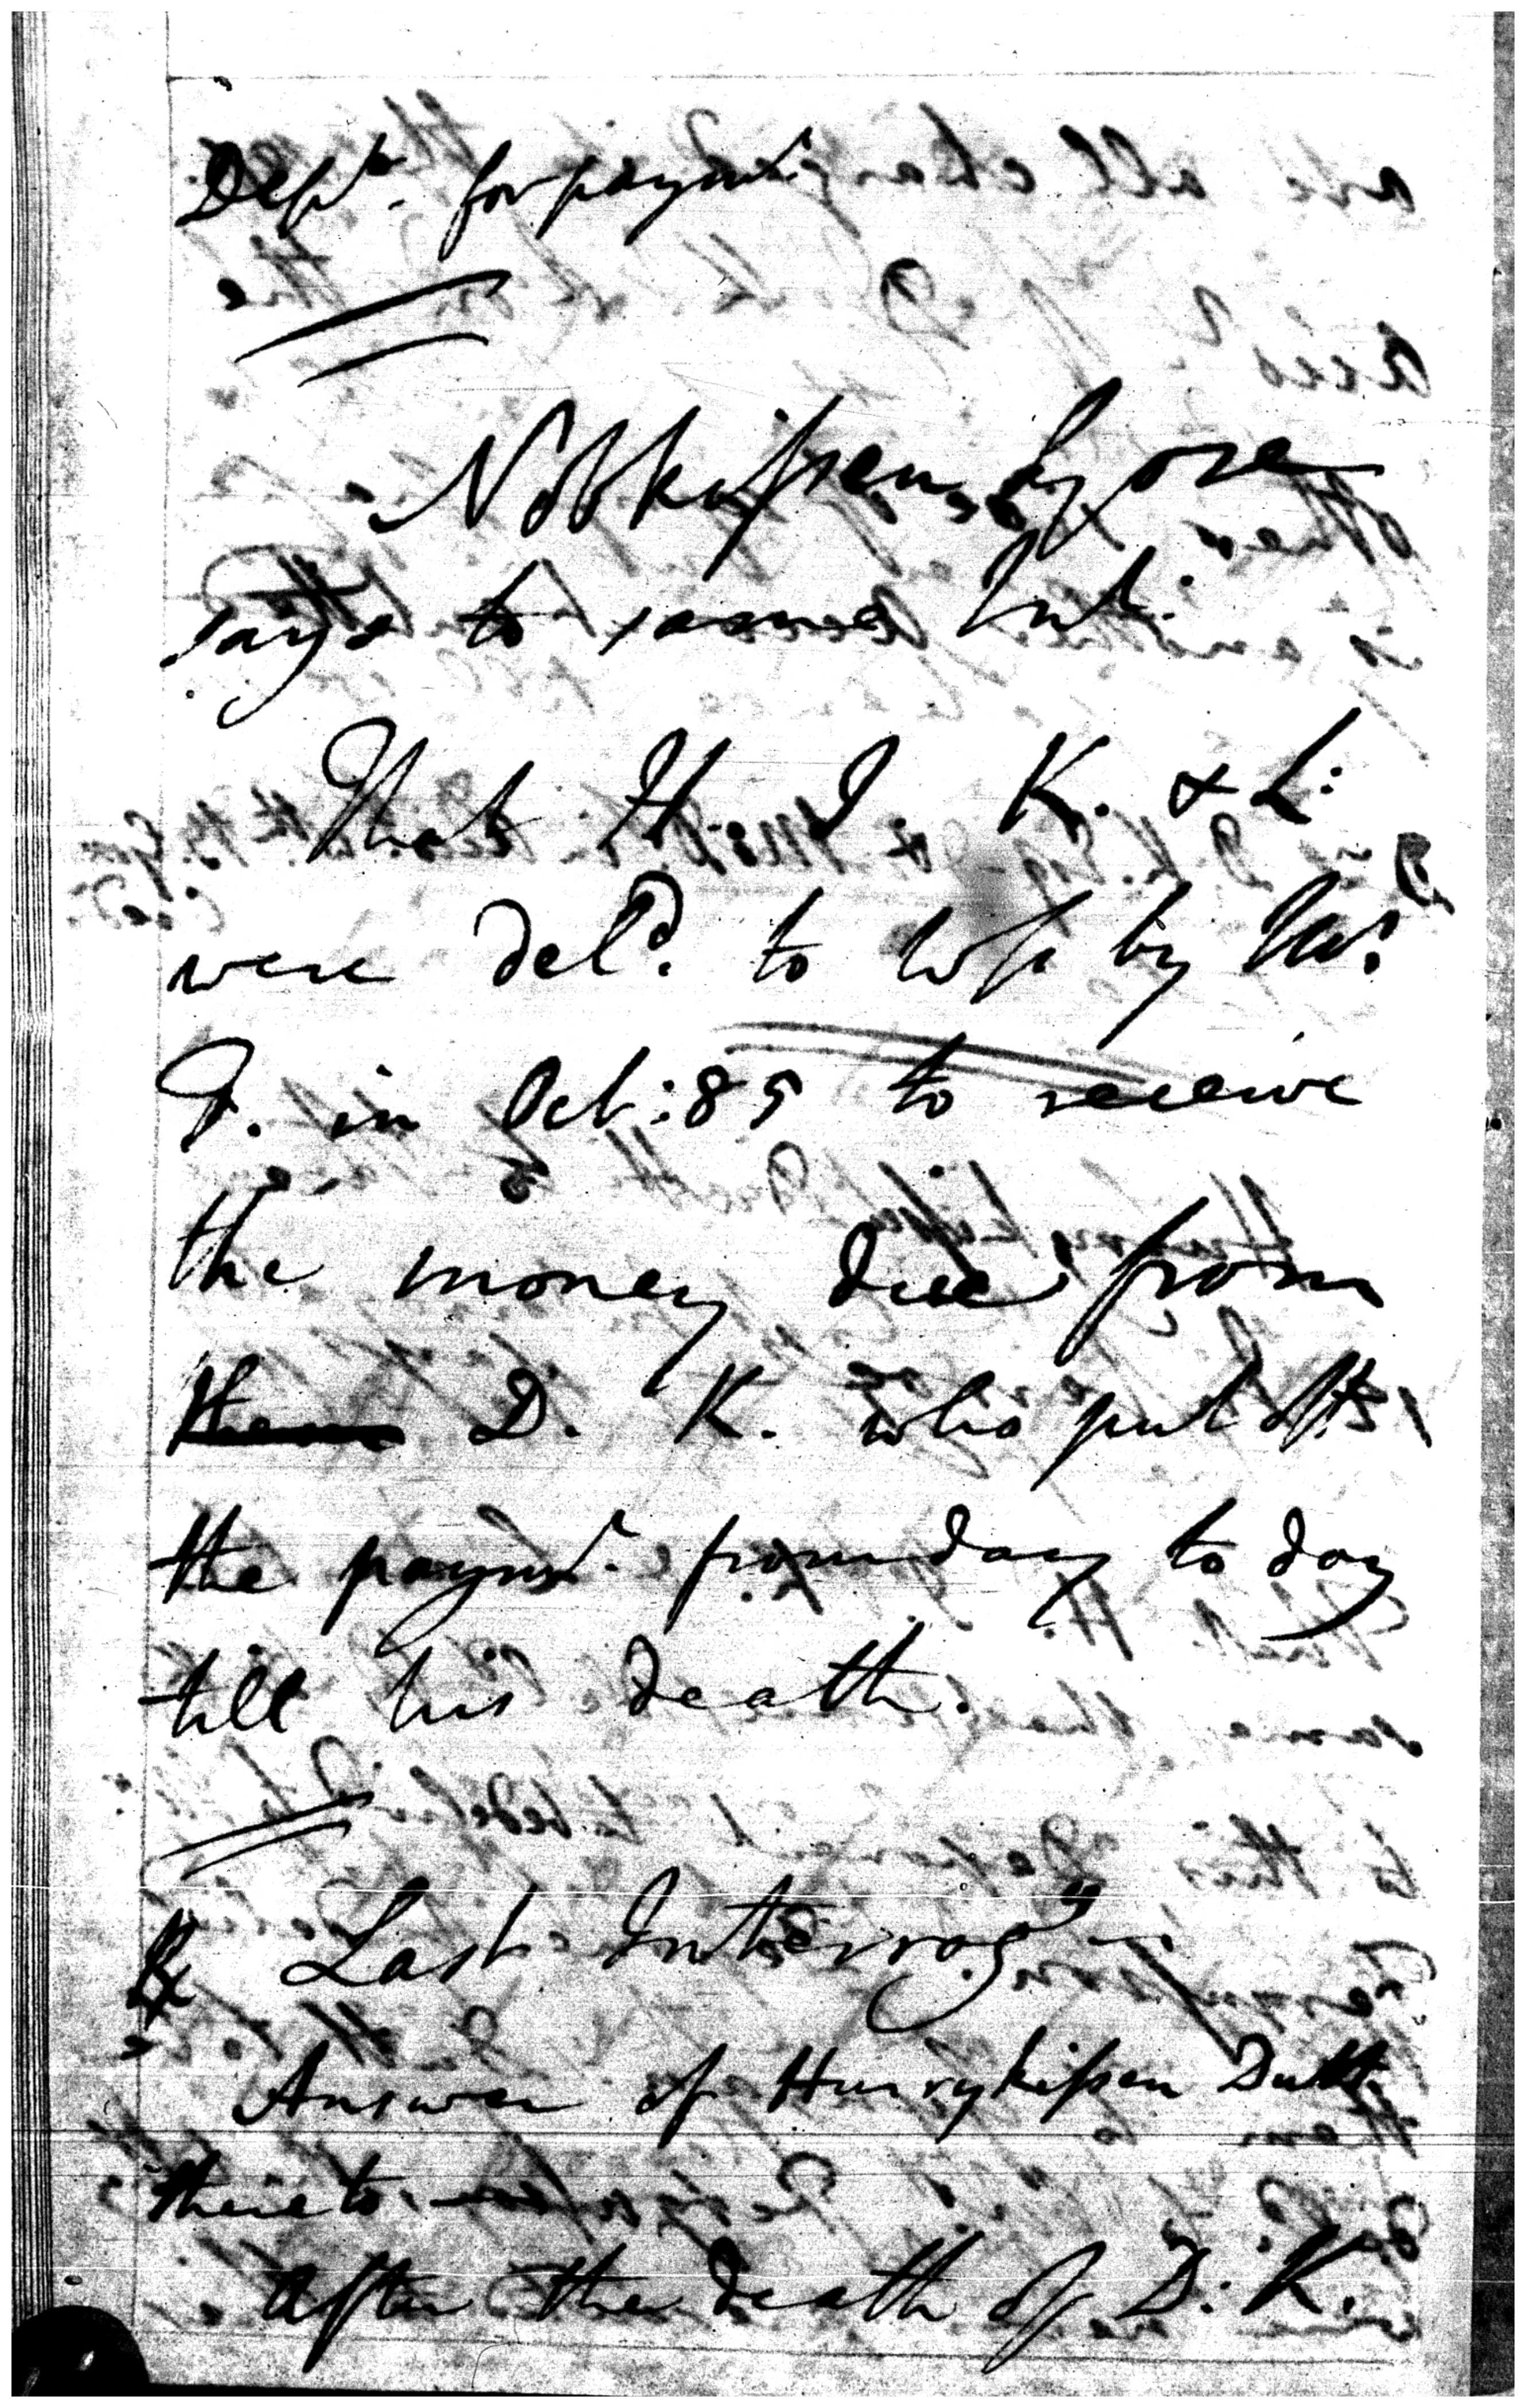 Dep.ts for paym.t
Nobkissen Gose
says to same Int:
That H I K. & L:
were del.d to by M.r
D. in Oct: 85 to receive
the money due from
them D. K. who put off
the paym.t from day to day
till his death.
Last Interrog.y
Answer of Hurrykissen Dutt
thereto.
After the death of D. K.